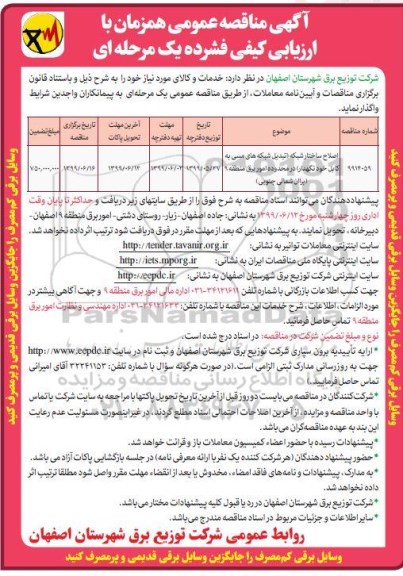 آگهی مناقصه عمومی همزمان با
ارزیابی کیفی فشرده یک مرحله ای
شرکت توزیع برق شهرستان اصفهان در نظر دارد: خدمات و کالای مورد نیاز خود را به شرح ذیل و باستناد قانون
برگزاری مناقصات و آیین‌نامه معاملات، از طریق مناقصه عمومی یک مرحله‌ای به پیمانکاران واجدین شرایط
واگذار نماید.
شماره مناقصه موضوع تاریخ توزیع دفترچه مهلت تهیه دفترچه آخرین مهلت تحویل پاکات تاریخ برگزاری مناقصه مبلغ تضمین
۹۹۱۴۰۵۹ اصلاح ساختار شبکه (تبدیل شبکه های مسی به کابل خود نگهدار) در محدوده امور برق منطقه ۹ (ایران شمالی جنوبی) ۱۳۹۹/۰۵/۲۷ ۱۳۹۹/۰۶/۰۲ ۱۳۹۹/۰۶/۱۲ ۱۳۹۹/۰۶/۱۶ ۷۵۰,۰۰۰,۰۰۰
پیشنهاددهندگان می‌توانند اسناد مناقصه به شرح فوق را از طریق سایتهای زیر دریافت و حداکثر تا پایان وقت
اداری روز چهارشنبه مورخ ۱۳۹۹/۰۶/۱۲ به نشانی: جاده اصفهان - زیار- روستای دشتی- امور برق منطقه ۹ اصفهان-
دبیرخانه، تحویل نمایند. به پیشنهادهایی که بعد از مهلت مقرر در فوق دریافت شود ترتیب اثر داده نخواهد شد.
سایت اینترنتی معاملات توانیر به نشانی: http://tender.tavanir.org.ir
سایت اینترنتی پایگاه ملی مناقصات ایران به نشانی: http://iets.mporg.ir
سایت اینترنتی شرکت توزیع برق شهرستان اصفهان به نشانی: http://eepdc.ir
جهت کسب اطلاعات بازرگانی با شماره تلفن ۳۴۱۲۱۶۱۱-۰۳۱ اداره مالی امور برق منطقه ۹ و جهت آگاهی بیشتر در
مورد الزامات، اطلاعات، شرح خدمات این مناقصه با شماره تلفن: ۳۴۱۲۱۶۳۳-۰۳۱ اداره مهندسی و نظارت امور برق
منطقه ۹ تماس حاصل فرمائید.
نوع و مبلغ تضمین شرکت در مناقصه: در اسناد درج شده است.
* ارایه تأییدیه برون سپاری شرکت توزیع برق شهرستان اصفهان و ثبت نام در سایت http://www.eepdc.ir
جهت به روزرسانی مدارک ثبتی الزامی است. (در صورت هرگونه سؤال با شماره تلفن: ۳۲۲۴۱۱۵۳ آقای امیرانی
تماس حاصل فرمایید.)
* شرکت‌کنندگان در مناقصه می‌بایست دو روز قبل از آخرین تاریخ تحویل پاکتها با مراجعه به سایت شرکت یا تماس
با واحد مناقصه و مزایده، از آخرین اصلاحات احتمالی اسناد مطلع گردند، در غیر اینصورت مسئولیت عدم رعایت
این بند به عهده مناقصه‌گران می‌باشد.
* پیشنهادات رسیده با حضور اعضاء کمیسیون معاملات باز و قرائت خواهد شد.
* حضور پیشنهاد دهندگان (هر شرکت کننده یک نفر با ارائه معرفی نامه) در جلسه بازگشایی پاکات آزاد می باشد.
* به مدارک، پیشنهادات و نامه‌های فاقد امضاء، مخدوش یا بعد از انقضاء مهلت مقرر واصل شود مطلقا ترتیب اثر
داده نخواهد شد.
* شرکت توزیع برق شهرستان اصفهان در رد یا قبول کلیه پیشنهادات مختار می‌باشد.
* سایر اطلاعات و جزئیات مربوط در اسناد مناقصه مندرج می‌باشد.
روابط عمومی شرکت توزیع برق شهرستان اصفهان
وسایل برقی کم‌مصرف را جایگزین وسایل برقی قدیمی و پرمصرف کنید
وسایل برقی کم‌مصرف را جایگزین وسایل برقی قدیمی و پرمصرف کنید
وسایل برقی کم‌مصرف را جایگزین وسایل برقی قدیمی و پرمصرف کنید